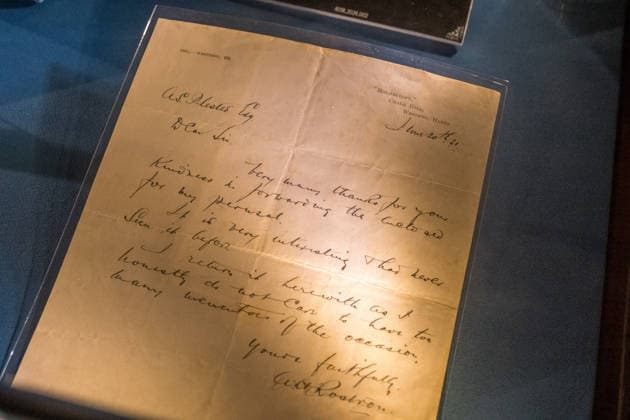 "Holmcroft,"
Chalk Hill,
West End, Hants
June 20th
Esq
Dear Sir
Very many thanks for your
kindness in forwarding the enclosed
for my perusal.
It is very interesting & had never
seen it before.
I return it herewith as I
honestly do not care to have too
many mementos of the occasion.
Yours faithfully
A H Rostron